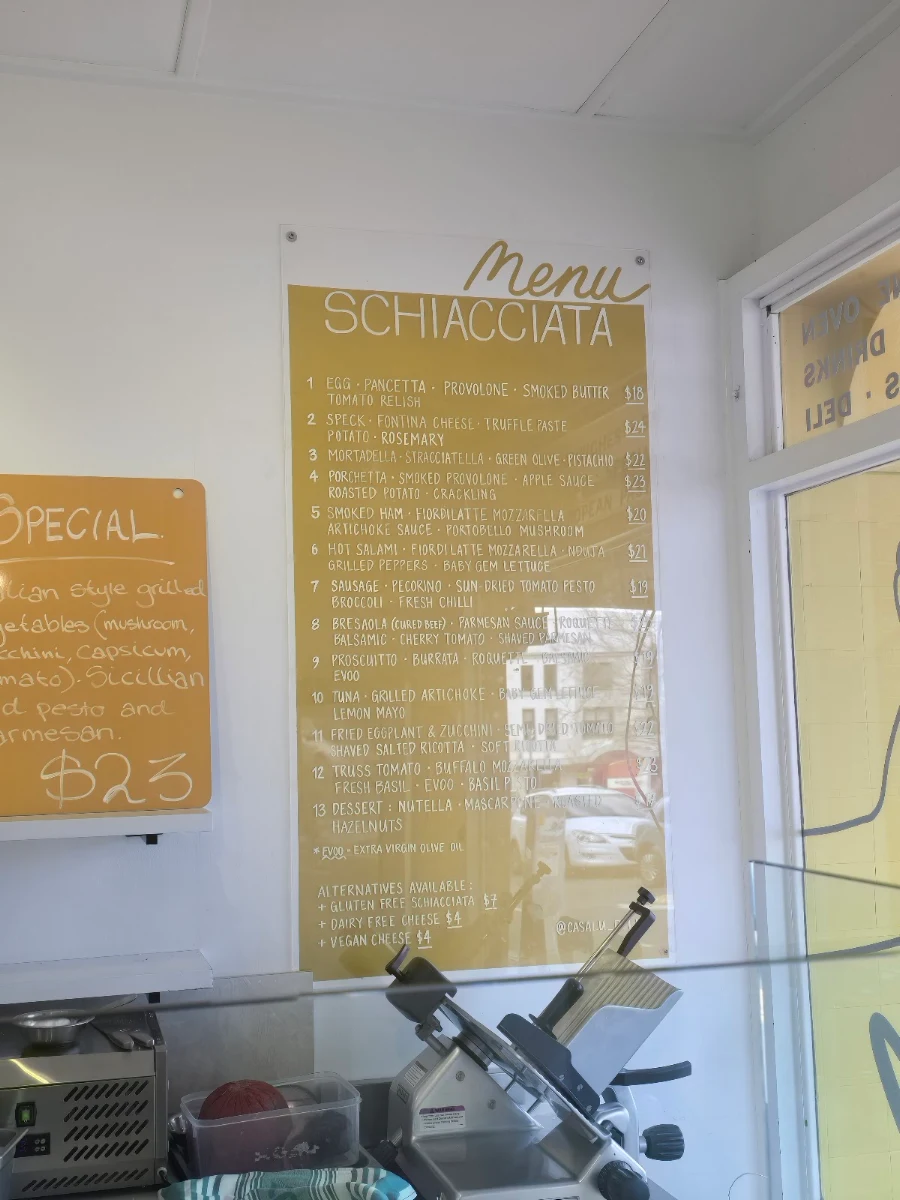 Menu
SCHIACCIATA
1 EGG · PANCETTA · PROVOLONE · SMOKED BUTTER $18
TOMATO RELISH
2 SPECK · FONTINA CHEESE · TRUFFLE PASTE $24
POTATO · ROSEMARY
3 MORTADELLA · STRACCIATELLA · GREEN OLIVE · PISTACHIO $22
4 PORCHETTA · SMOKED PROVOLONE · APPLE SAUCE $23
ROASTED POTATO · CRACKLING
5 SMOKED HAM · FIORDILATTE MOZZARELLA $20
ARTICHOKE SAUCE · PORTOBELLO MUSHROOM
6 HOT SALAMI · FIORDILATTE MOZZARELLA · NDUJA $21
GRILLED PEPPERS · BABY GEM LETTUCE
7 SAUSAGE · PECORINO · SUN-DRIED TOMATO PESTO $19
BROCCOLI · FRESH CHILLI
8 BRESAOLA (CURED BEEF) · PARMESAN SAUCE · ROQUETTE
BALSAMIC · CHERRY TOMATO · SHAVED PARMESAN
9 PROSCUITTO · BURRATA · ROQUETTE
EVOO
10 TUNA · GRILLED ARTICHOKE · BABY GEM LETTUCE
LEMON MAYO
11 FRIED EGGPLANT & ZUCCHINI · SEMI DRIED TOMATO
SHAVED SALTED RICOTTA · SOFT RICOTTA
12 TRUSS TOMATO · BUFFALO MOZZARELLA
FRESH BASIL · EVOO · BASIL PESTO
13 DESSERT : NUTELLA · MASCARPONE · ROASTED
HAZELNUTS
* EVOO = EXTRA VIRGIN OLIVE OIL
ALTERNATIVES AVAILABLE :
+ GLUTEN FREE SCHIACCIATA $7
+ DAIRY FREE CHEESE $4
+ VEGAN CHEESE $4
SPECIAL
lian style grilled
getables (mushroom,
cchini, capsicum,
mato). Sicillian
d pesto and
armesan.
$23
OVEN
DRINKS
S · DELI